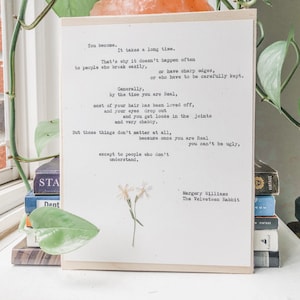 You become.
It takes a long time.
That's why it doesn't happen often
to people who break easily,
or have sharp edges,
or who have to be carefully kept.
Generally,
by the time you are Real,
most of your hair has been loved off,
and your eyes drop out
and you get loose in the joints
and very shabby.
But these things don't matter at all,
because once you are Real
you can't be ugly,
except to people who don't
understand.
Margery Williams
The Velveteen Rabbit
STA